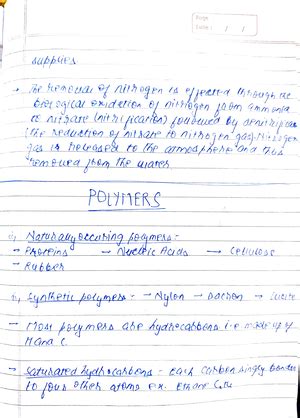 Page
Date / /
supplies
→ The removal of nitrogen is effected through the
biological oxidation of nitrogen from ammonia
to nitrate (nitrification) followed by denitrification
(the reduction of nitrate to nitrogen gas). Nitrogen
gas is released to the atmosphere and thus
removed from the water.
POLYMERS
Naturally occuring polymers:-
→ Proteins → Nucleic Acids → Cellulose
→ Rubber
Synthetic polymers:- → Nylon → Dacron → Lucite
→ Most polymers are hydrocarbons i.e made up of
H and C.
→ Saturated hydrocarbons - Each carbon singly bonded
to four other atoms ex. Ethane